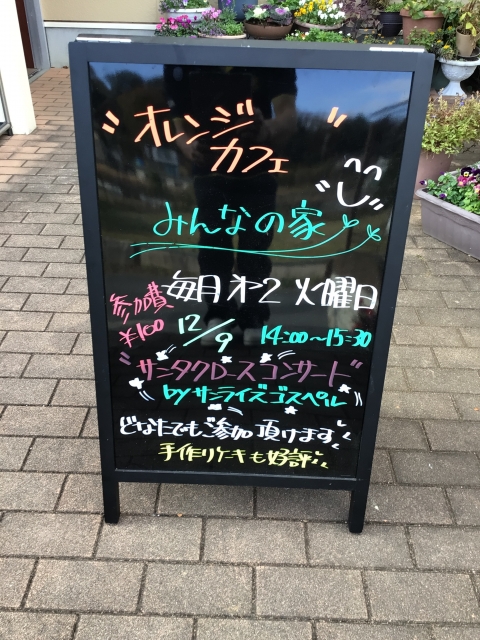 オレンジ
カフェ
みんなの家
毎月第2 火曜日
参加費
¥100
12/9 14:00~15:30
サンタクロースコンサート
by サンライズゴスペル
どなたでもご参加頂けます
手作りケーキも好評